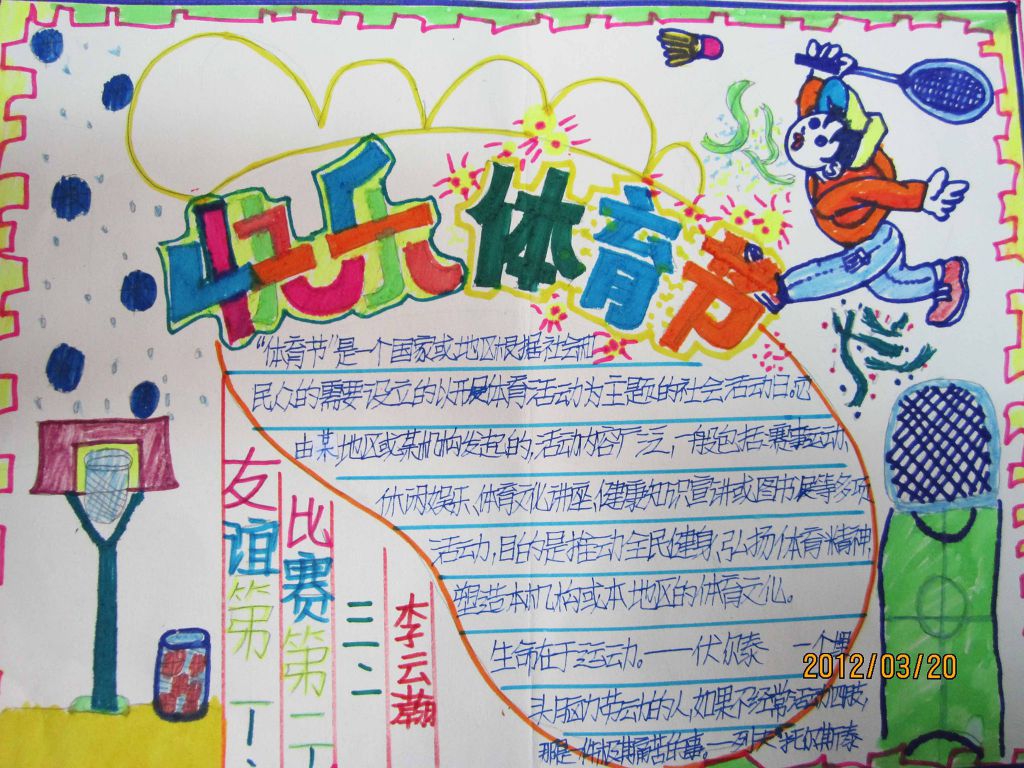 快乐体育节
"体育节"是一个国家或地区根据社会和
民众的需要设立的以开展体育活动为主题的社会活动日。它
由某地区或某机构发起的,活动内容广泛,一般包括:赛事运动、
休闲娱乐、体育文化讲座、健康知识宣讲或图书展等多项
活动,目的是推动全民健身,弘扬体育精神,
塑造本机构或本地区的体育文化。
生命在于运动。——伏尔泰 一个埋
头脑力劳动的人,如果不经常活动四肢,
那是一件极其痛苦的事。—列夫·托尔斯泰
友谊第一
比赛第二
三二、二
李云瀚
2012/03/20